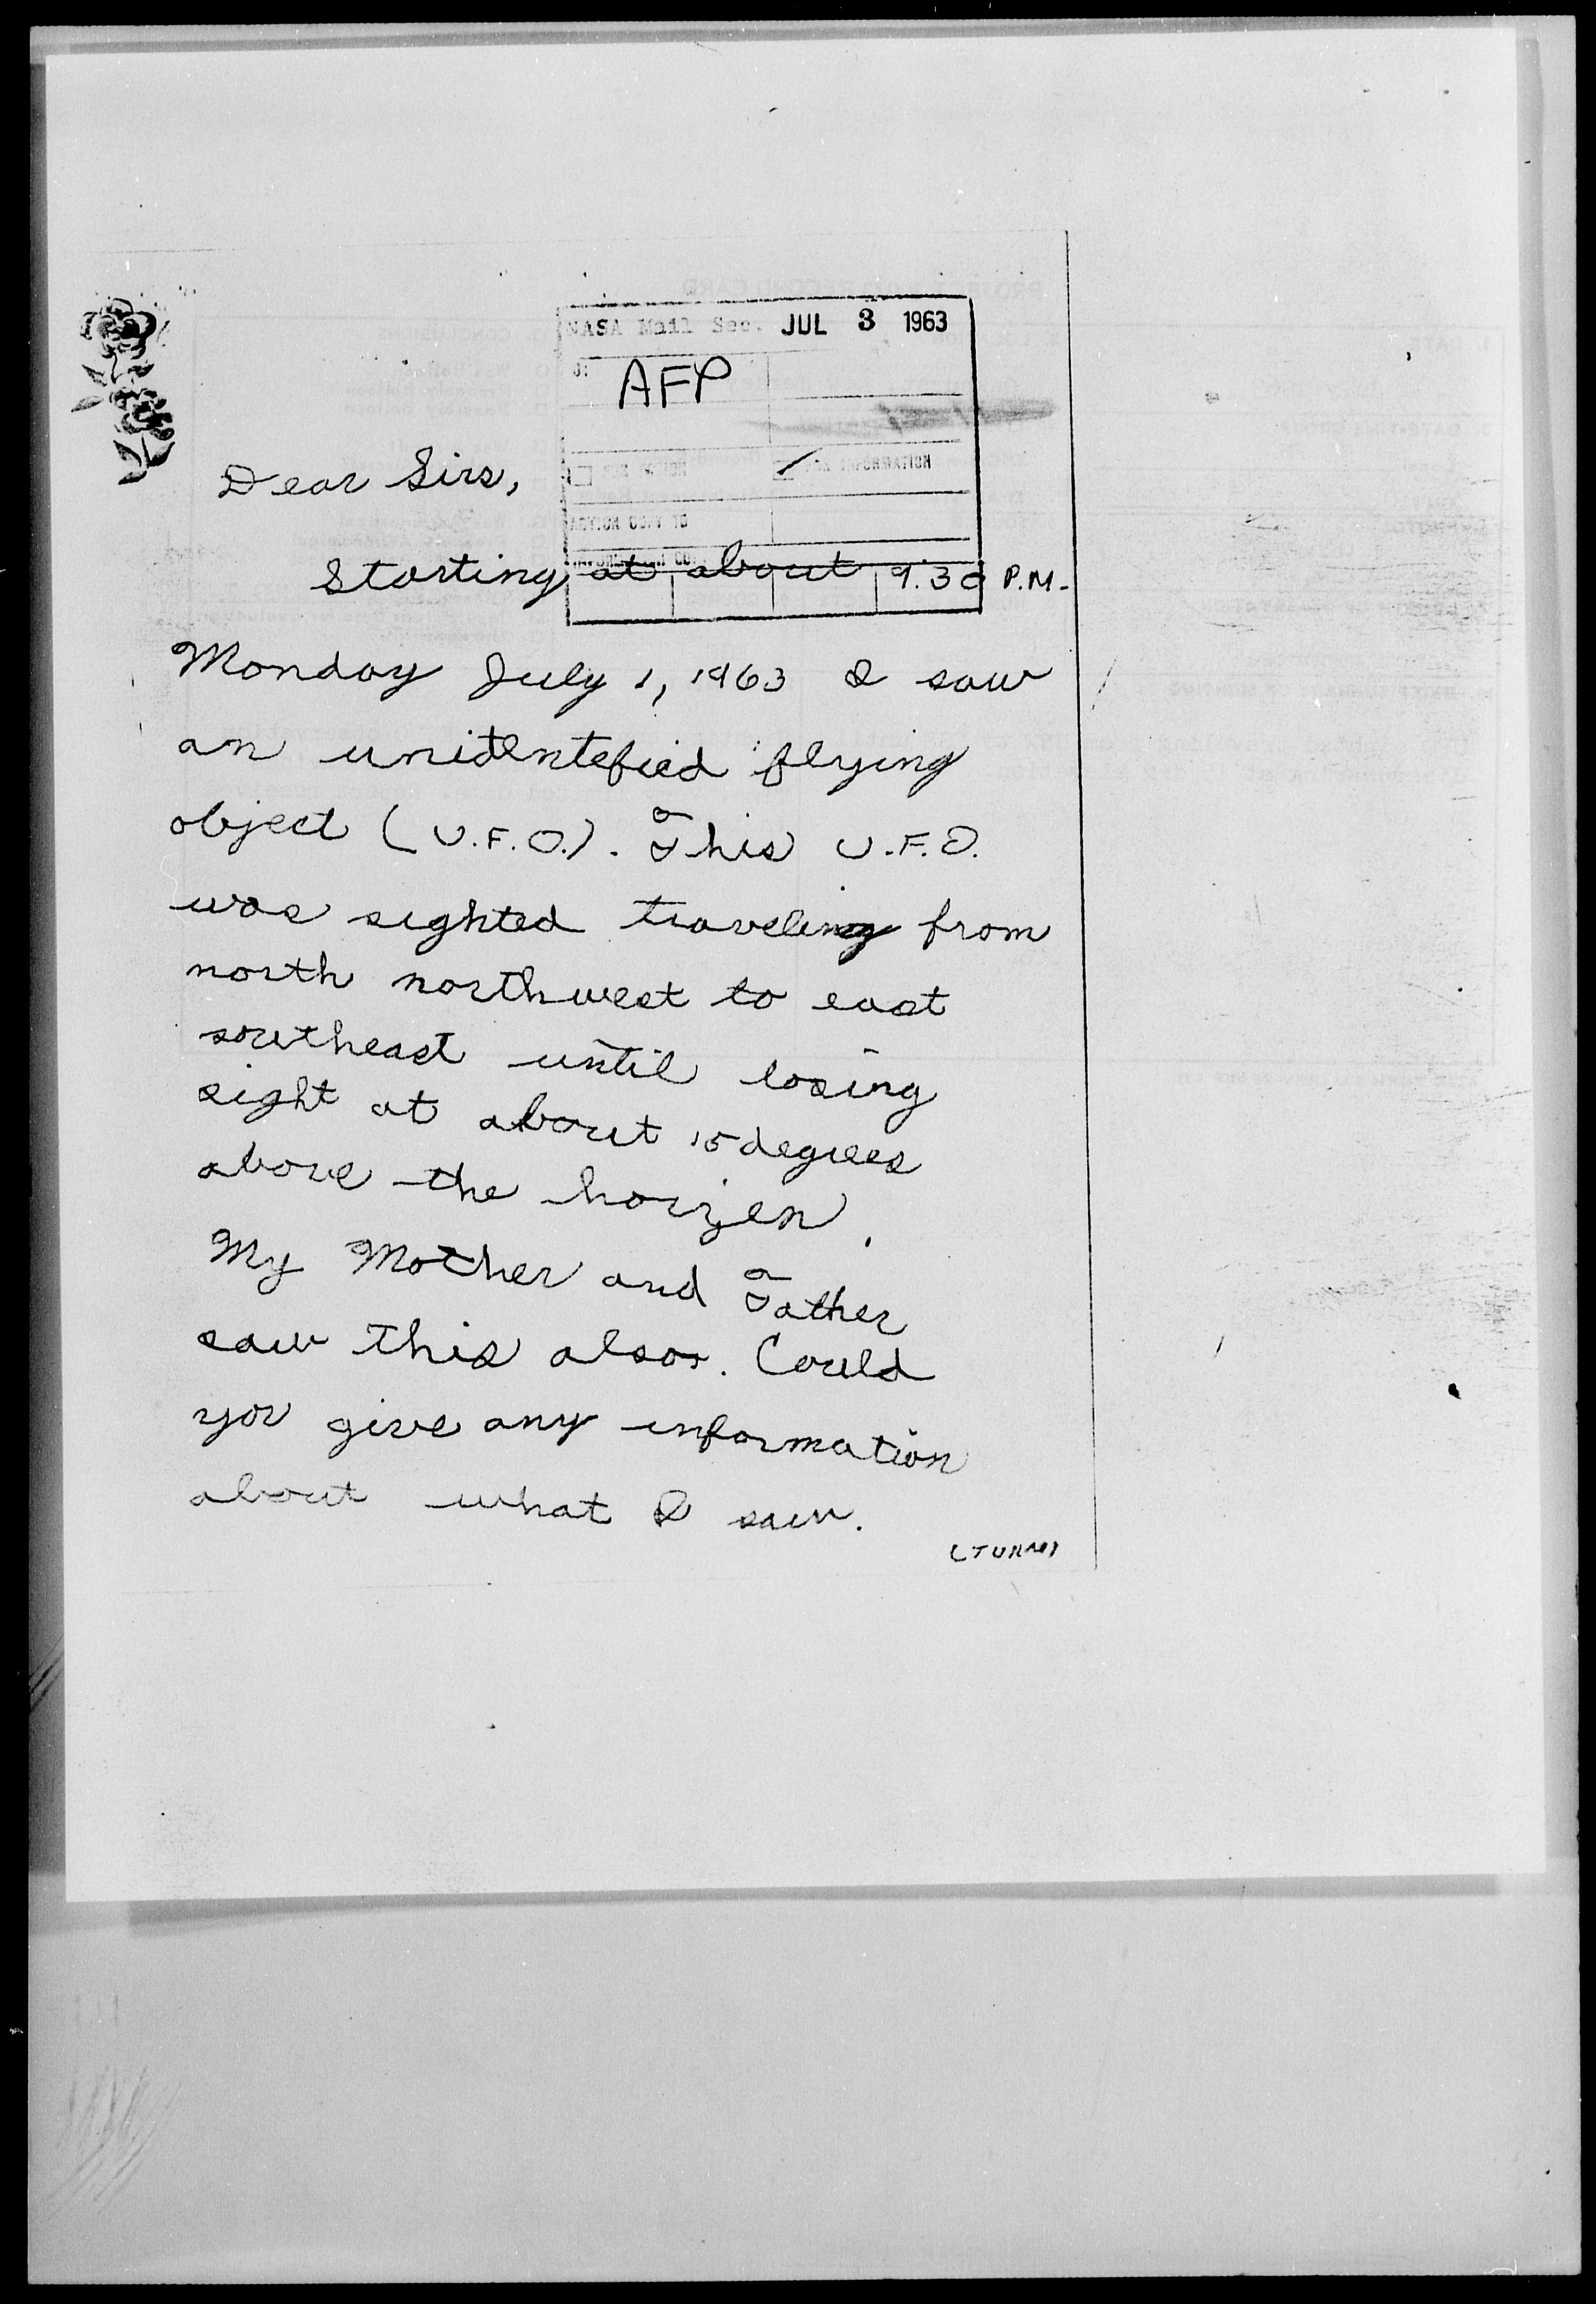 NASA Mail Sec. JUL 3 1963
AFP
FOR ACTION FOR INFORMATION
ACTION COPY TO
INFORMATION
Dear Sirs,
Starting at about 9:30 P.M.
Monday July 1, 1963 I saw
an unidentefied flying
object (U.F.O.). This U.F.O.
was sighted traveling from
north northwest to east
southeast until losing
sight at about 15 degrees
above the horizen.
My Mother and Father
saw this also. Could
you give any information
about what I saw.
(TURN)